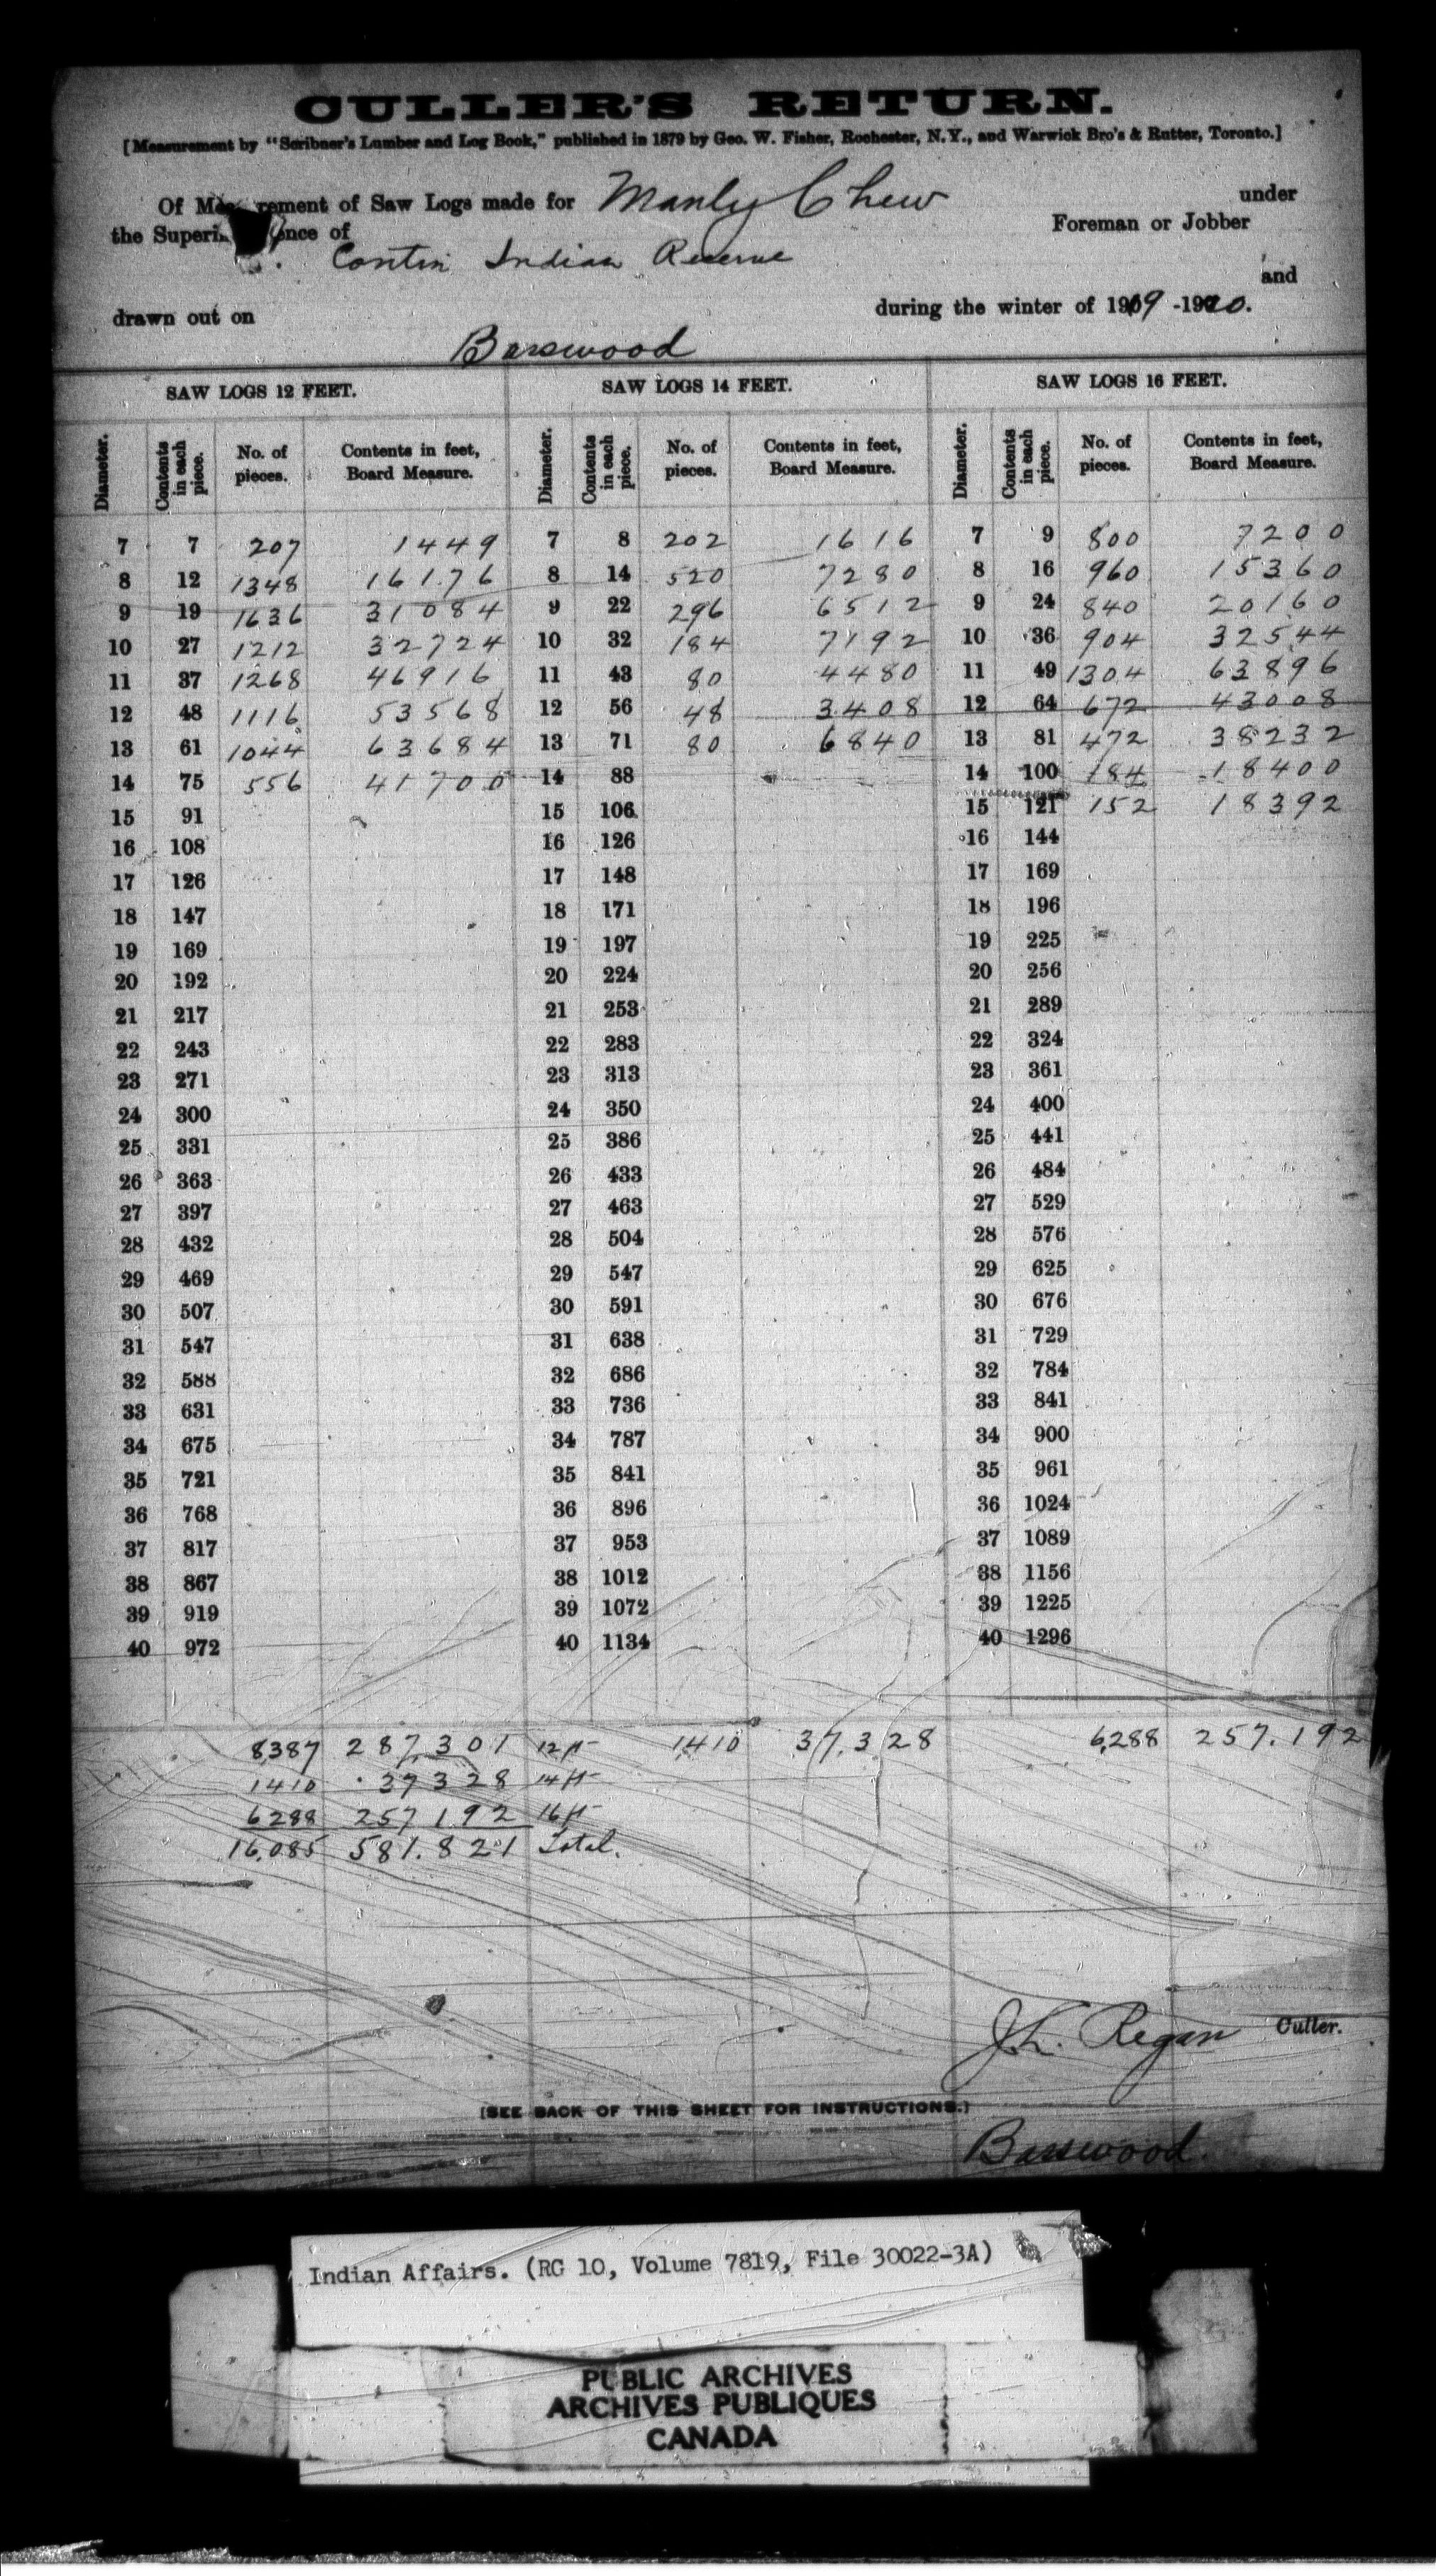 CULLER'S RETURN.
[Measurement by "Scribner's Lumber and Log Book," published in 1879 by Geo. W. Fisher, Rochester, N.Y., and Warwick Bro's & Rutter, Toronto.]
Of Mea rement of Saw Logs made for Manly Chew under
the Superin ence of Foreman or Jobber
Indian Reserve
and
drawn out on during the winter of 1919 -1920.
Basswood
SAW LOGS 12 FEET. SAW LOGS 14 FEET. SAW LOGS 16 FEET.
Diameter. Contents in each piece. No. of pieces. Contents in feet, Board Measure. Diameter. Contents in each piece. No. of pieces. Contents in feet, Board Measure. Diameter. Contents in each piece. No. of pieces. Contents in feet, Board Measure.
7 7 207 1449 7 8 202 1616 7 9 800 7200
8 12 1348 16176 8 14 520 7280 8 16 960 15360
9 19 1636 31084 9 22 296 6512 9 24 840 20160
10 27 1212 32724 10 32 184 7192 10 36 904 32544
11 37 1268 46916 11 43 80 4480 11 49 1304 63896
12 48 1116 53568 12 56 48 3408 12 64 672 43008
13 61 1044 63684 13 71 80 6840 13 81 472 38232
14 75 556 41700 14 88 14 100 184 18400
15 91 15 106 15 121 152 18392
16 108 16 126 16 144
17 126 17 148 17 169
18 147 18 171 18 196
19 169 19 197 19 225
20 192 20 224 20 256
21 217 21 253 21 289
22 243 22 283 22 324
23 271 23 313 23 361
24 300 24 350 24 400
25 331 25 386 25 441
26 363 26 433 26 484
27 397 27 463 27 529
28 432 28 504 28 576
29 469 29 547 29 625
30 507 30 591 30 676
31 547 31 638 31 729
32 588 32 686 32 784
33 631 33 736 33 841
34 675 34 787 34 900
35 721 35 841 35 961
36 768 36 896 36 1024
37 817 37 953 37 1089
38 867 38 1012 38 1156
39 919 39 1072 39 1225
40 972 40 1134 40 1296
8387 287,301 12 ft 1410 37.328 6,288 257.192
1410 37328 14 ft
6288 257192 16 ft
16,085 581.821 Total.
J.L. Regan Culler.
[SEE BACK OF THIS SHEET FOR INSTRUCTIONS.]
Basswood.
Indian Affairs. (RG 10, Volume 7819, File 30022-3A)
PUBLIC ARCHIVES
ARCHIVES PUBLIQUES
CANADA